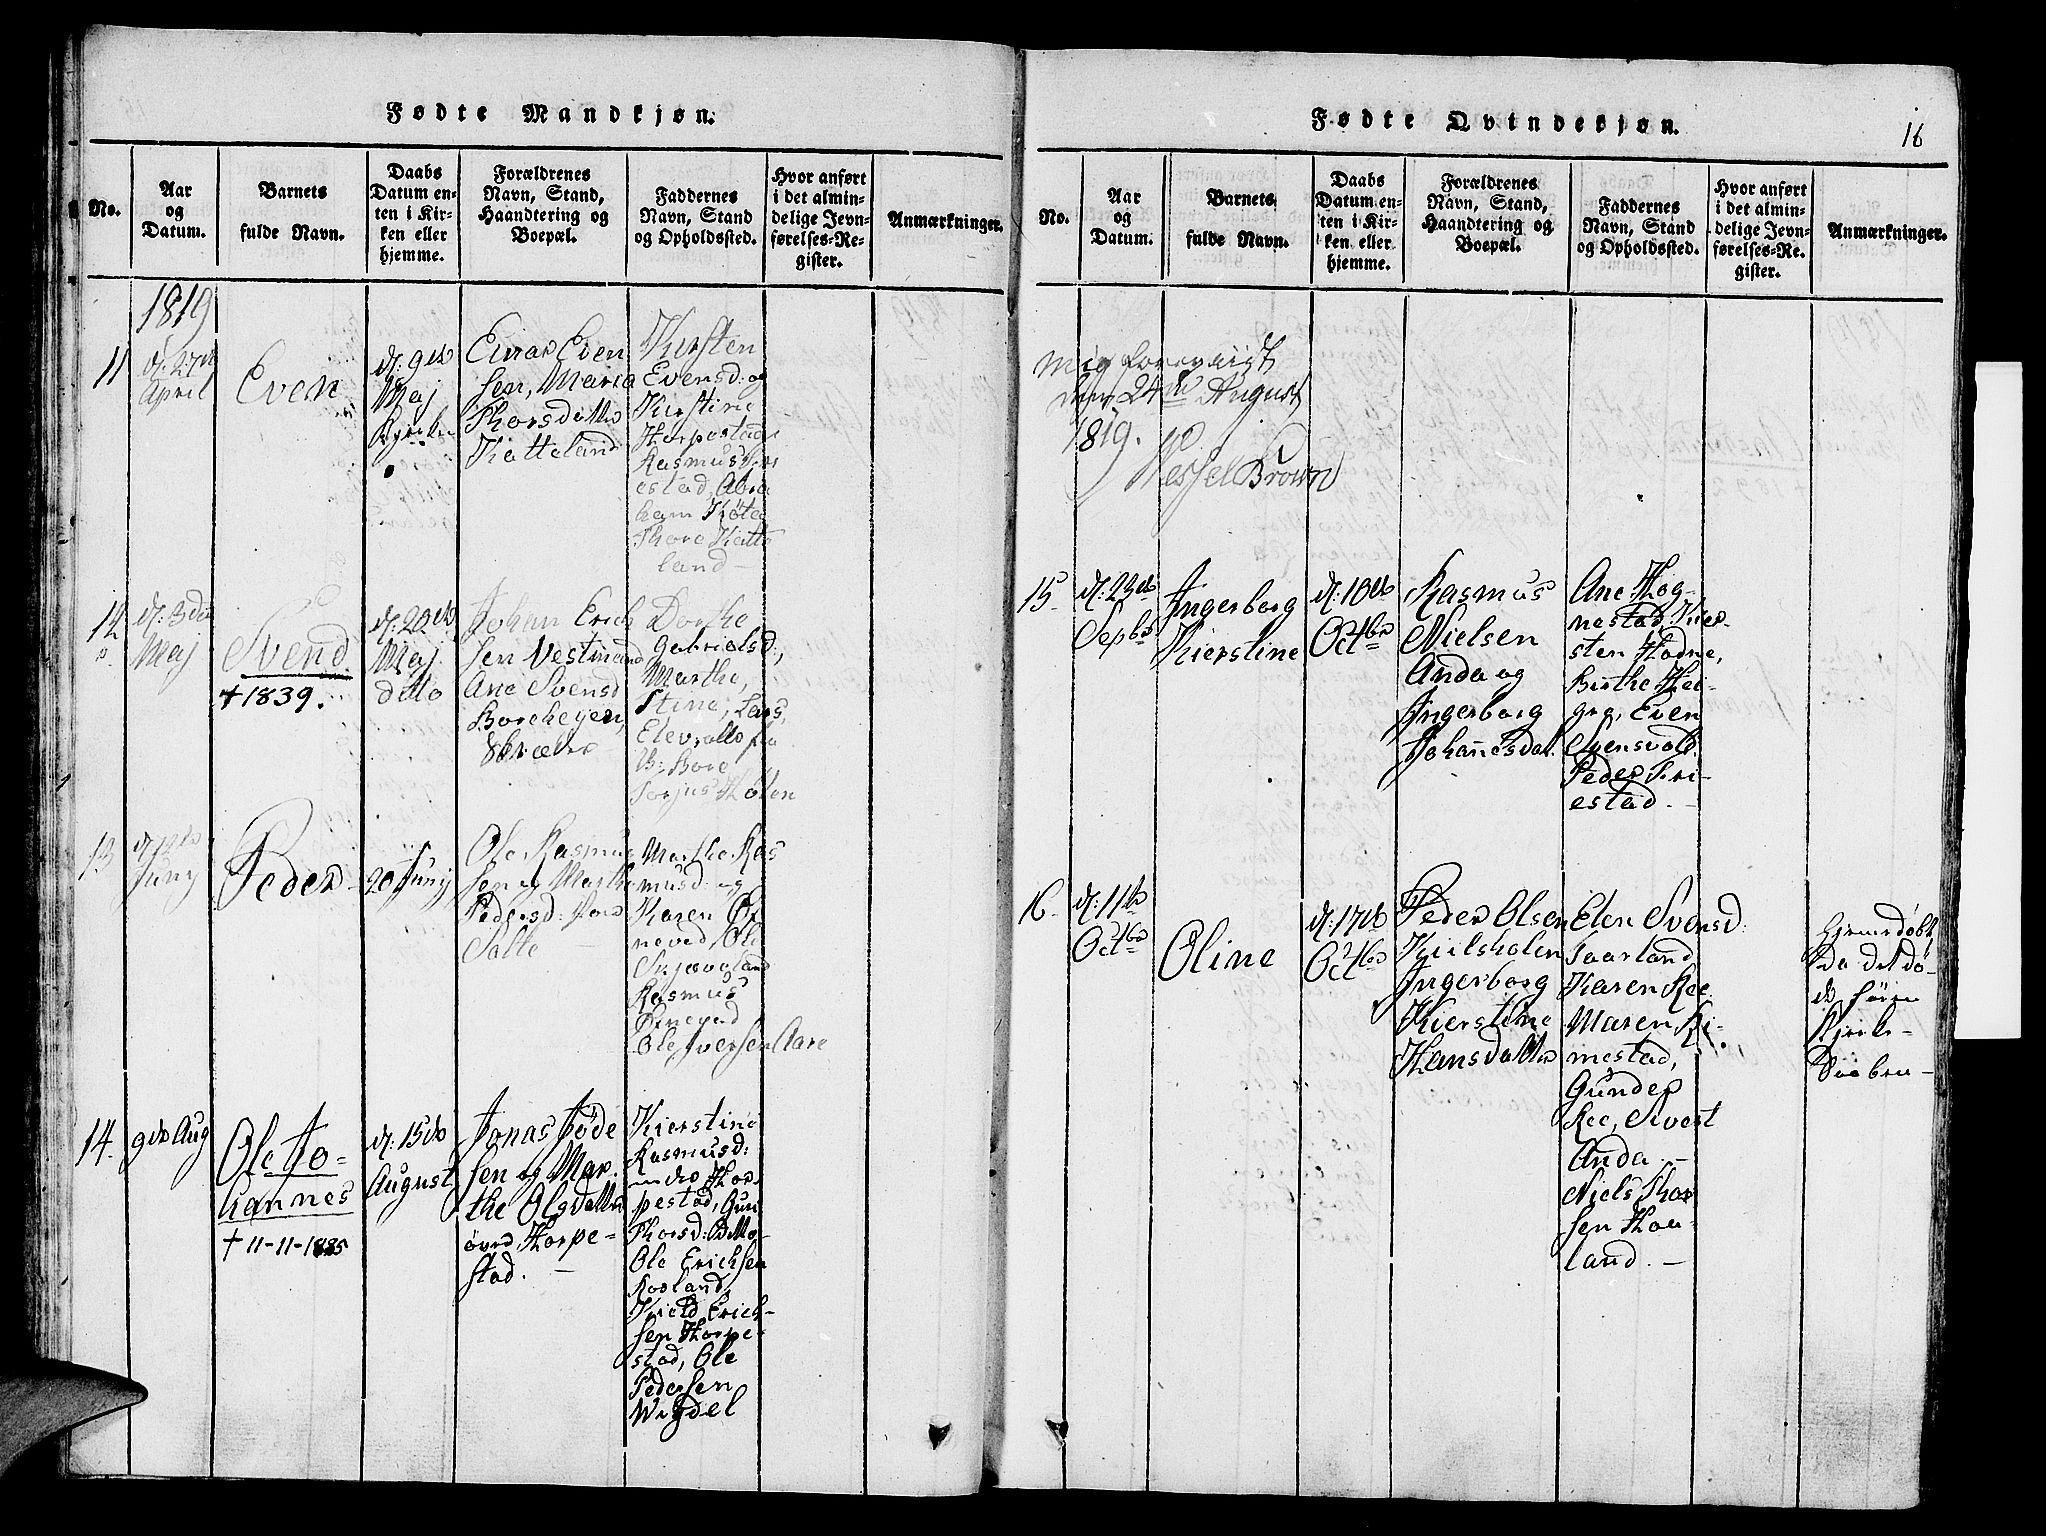 Fødte Mandkjøn.
No.
Aar
og
Datum.
Barnets
fulde Navn.
Daabs
Datum en-
ten i Kir-
ken eller
hjemme.
Forældrenes
Navn, Stand,
Haandtering og
Boepæl.
Faddernes
Navn, Stand
og Opholdssted.
Hvor anført
i det almin-
delige Jevn-
førelses-Re-
gister.
Anmærkninger.
1819
11
d: 27de
April
Even
d: 9de
Maj
Kirken
Einar Even
sen, Maria
Thorsdatter
Katteland
Kirsten
Evensd: og
Kirstine
Horpestad
Rasmus
estad, Abra
ham
Thore Katte
land
12
d: 3die
Maj
Svend
+ 1839.
d: 20de
Maj
ditto
Johan Erich
sen
Ane Svensd
Borehejen,
Dorthe
Gabrielsd:,
Marthe,
Stine, Lars,
Elev, alle fra
B: Bore
Torjus
13
Juny
Peder
20 Juny
Ole Rasmus
sen og Marthe
Pedersd:
Salte
Marthe Ras
musd: og
Karen
neved, Ole
Skjæveland
Rasmus
Ole Iversen Aare
14.
9de Aug
Ole Jo-
hannes
+ 11-11-1885
d: 15de
August
Jonas
sen og Mar
the Olsdatter
øvre Horpe-
stad.
Kierstine
Rasmusd:
nedre Hor
pestad, Guri
Thorsd: ditto
Ole Erichsen
Rosland,
Kield Erich-
sen Horpe-
stad, Ole
Pedersen
Wigdel
Fødte Qvindekjøn.
16
No.
Aar
og
Datum.
Barnets
fulde Navn.
Daabs
Datum en-
ten i Kir-
ken eller
hjemme.
Forældrenes
Navn, Stand,
Haandtering og
Boepæl.
Faddernes
Navn, Stand
og Opholdssted.
Hvor anført
i det almin-
delige Jevn-
førelses-Re-
gister.
Anmærkninger.
mig foreviist
den 24de August
1819.
Wessel Brown
15
d: 23de
Sepbr
Ingerborg
Kierstine
d: 10de
Octbr
Rasmus
Nielsen
Anda og
Ingerborg
Johannesdat.
Ane Hog-
nestad, Kier-
sten Hodne,
Birthe Hei-
gre, Even
Svensvold
Peder Fri-
estad.
16.
d: 11te
Octbr
Oline
d: 17de
Octbr
Peder Olsen
Kielsholen
Ingerborg
Kierstine
Hansdatter
Elen Svensd:
Taarland
Karen Ree
Maren Ri-
mestad,
Gunder
Ree, Sivert
Anda
Niels Thor
sen Hou-
land.
Hjemdøbt,
Da det dø-
de førend
Kirke-
Daaben